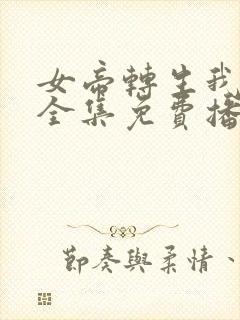 女帝轉生我
全集免費播
節奏與柔情、